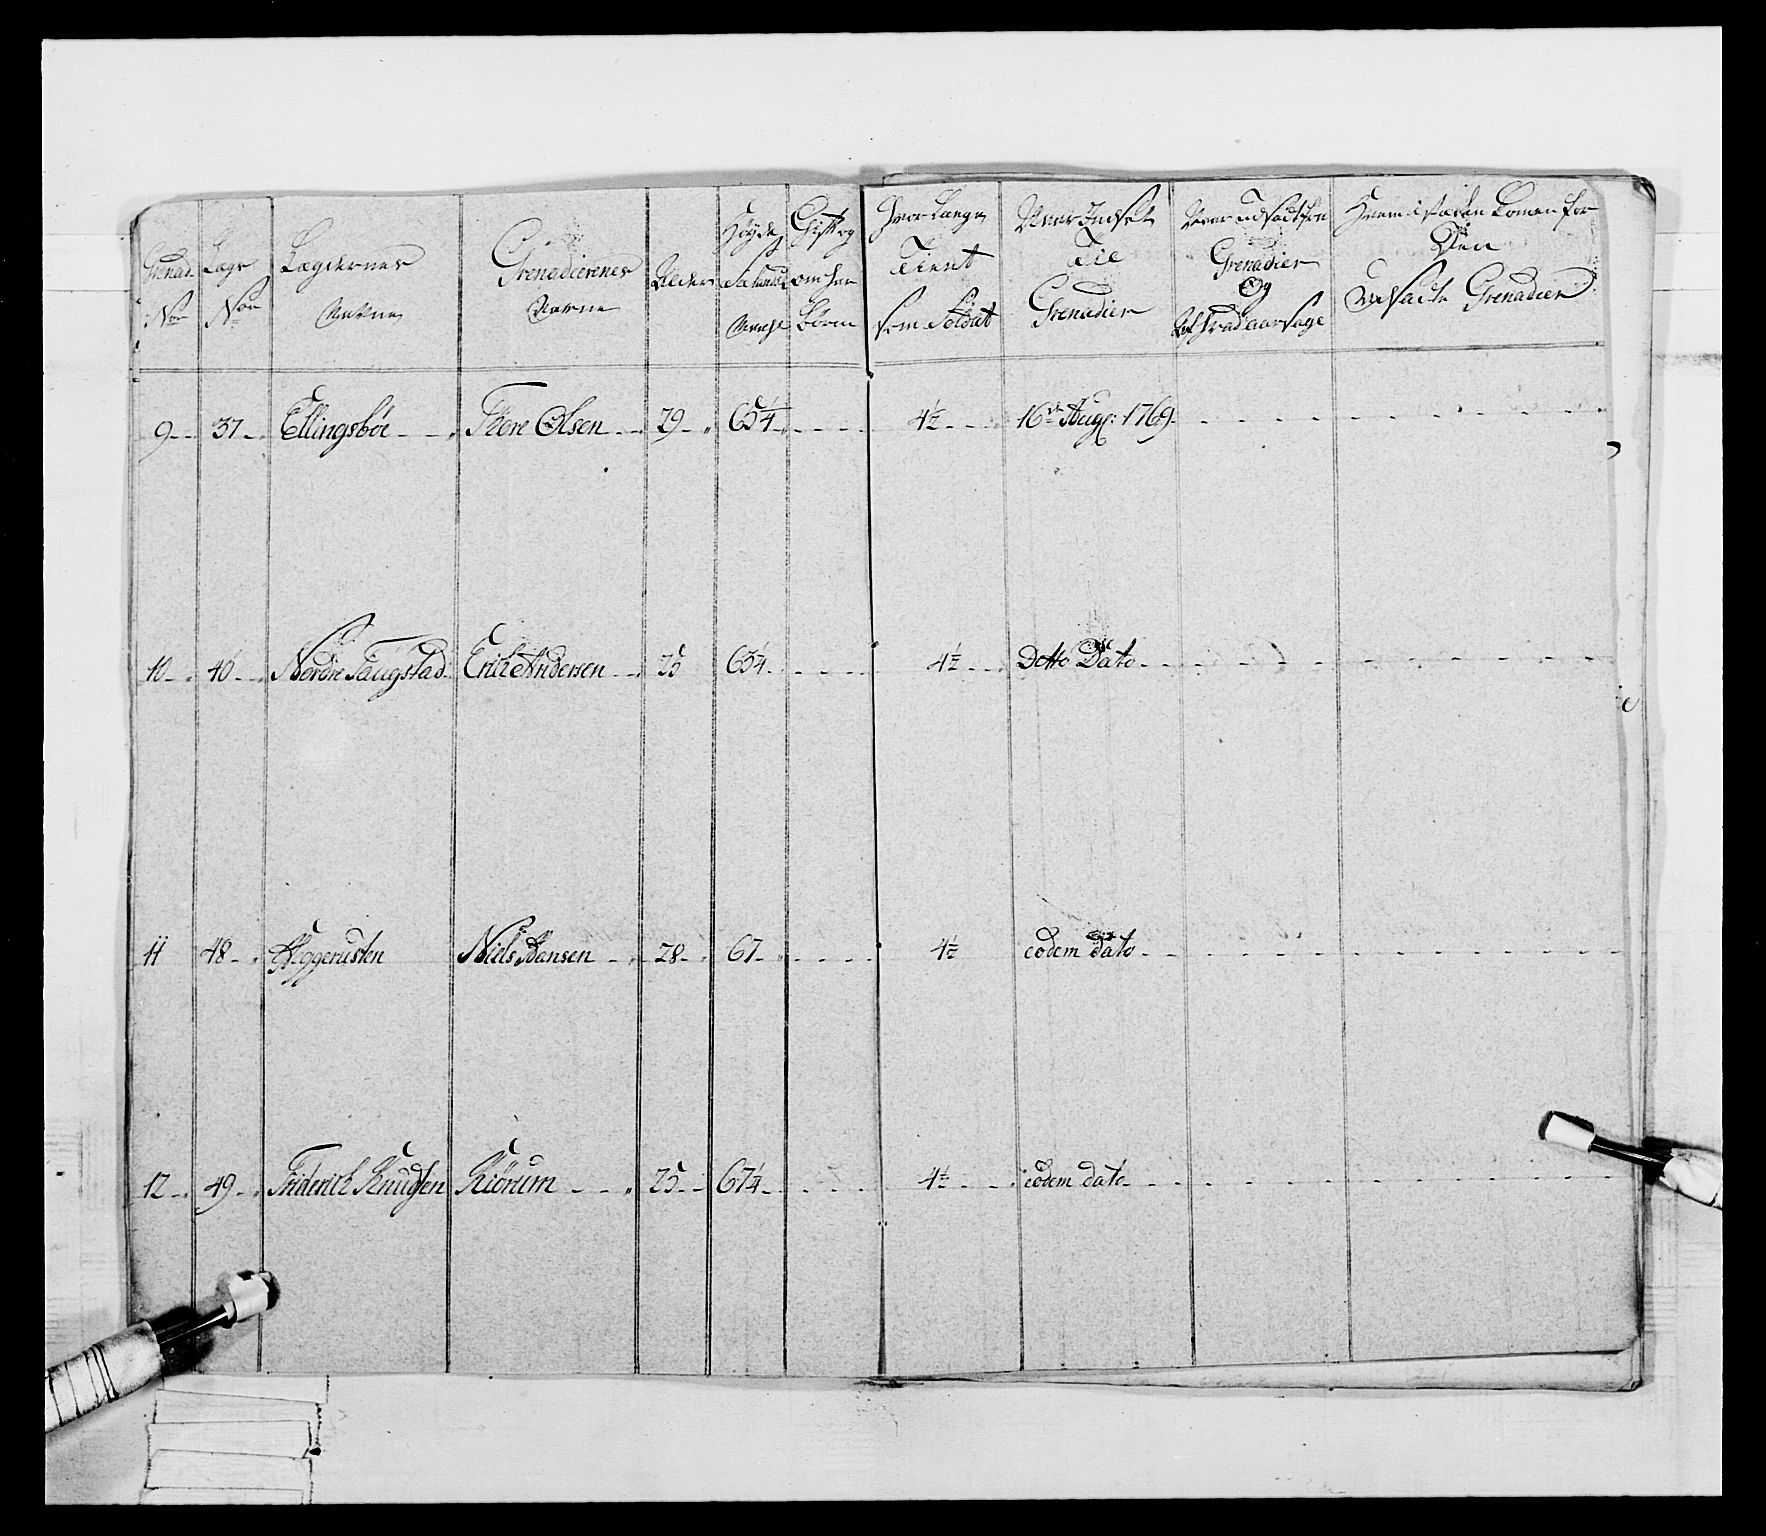 Grenad. No
Lægs No
Lægdernes Navne
Grenadierenes Navne
Alder
Høyde
Gift og om har Børn
Hvor Længe Tient som Soldat
Naar Indsat Til Grenadier
Naar udsadt fra Grenadier Og
Hvem i stæden komen for Den Udsadte Grenadeer
9 37 Ellingsböe Thore Olsen 29 65¼ 4½ 16de Aug: 1769
10 40 Nordre Taugstad Erich Andersen 25 65¼ 4½ Detto Dato
11 48 Heggerusten Niels Hansen 28 67 4½ eodem dato
12 49 Friderich Knudsen Kiörum 25 67¼ 4½ eodem dato